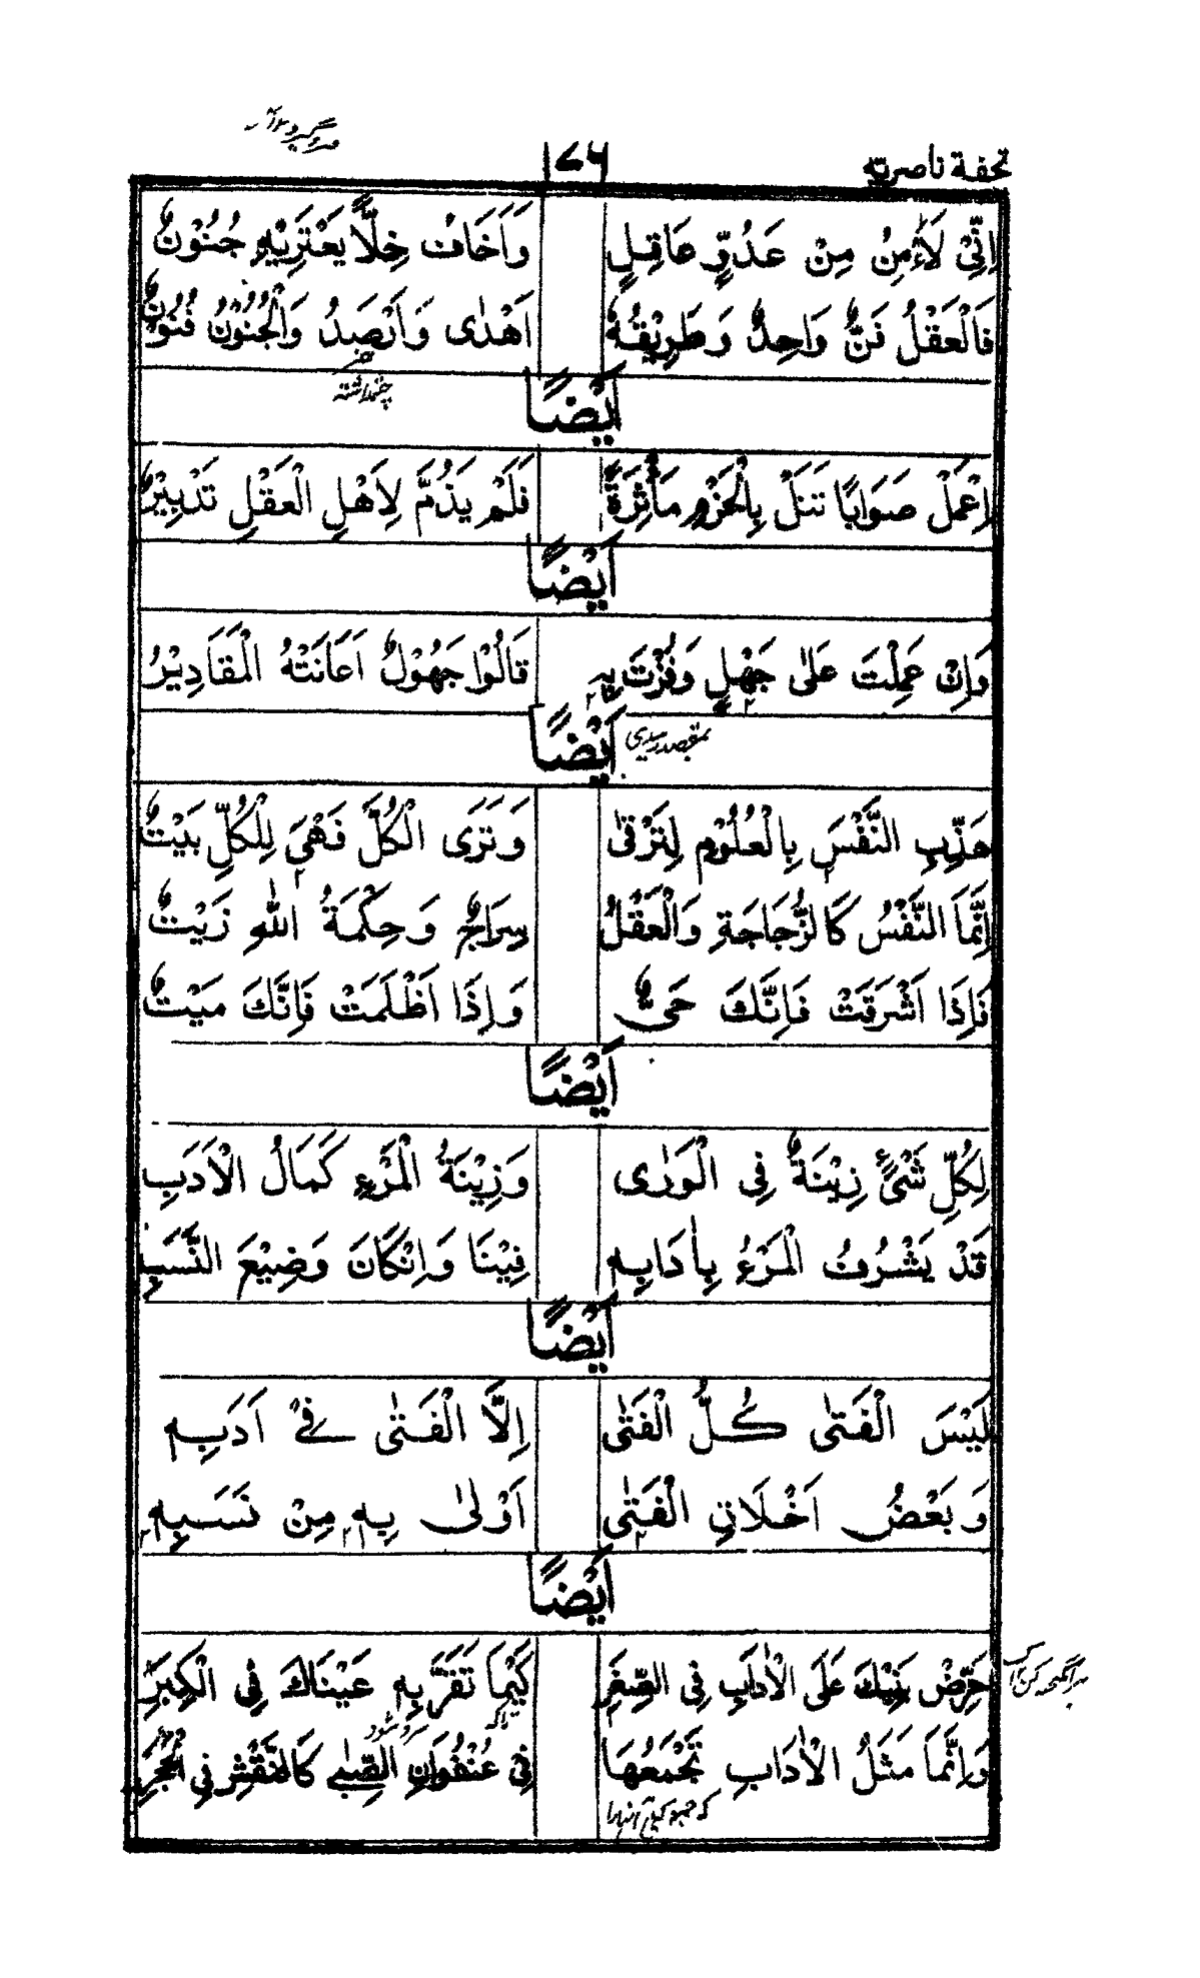 تحفۀ ناصریّه
۱۷۶
اِنِّیْ لَاٰمِنُ مِنْ عَدُوٍّ عَاقِلٍ وَاَخَافُ خِلًّا یَعْتَرِیْهِ جُنُوْنٌ
فَالْعَقْلُ فَنٌّ وَاحِدٌ وَطَرِیْقُهٗ اَهْدٰی وَاَرْصَدُ وَالْجُنُوْنُ فُنُوْنٌ
اَیْضًا
اِعْمَلْ صَوَابًا تَنَلْ بِالْحَزْمِ مَأْثَرَةً فَلَمْ یَذُمَّ لِاَهْلِ الْعَقْلِ تَدْبِیْرٌ
اَیْضًا
وَاِنْ عَمِلْتَ عَلٰی جَهْلٍ وَفُزْتَ بِهٖ قَالُوْا جَهُوْلٌ اَعَانَتْهُ الْمَقَادِیْرُ
اَیْضًا
هَذِّبِ النَّفْسَ بِالْعُلُوْمِ لِتَرْقٰی وَتَرَی الْکُلَّ فَهْیَ لِلْکُلِّ بَیْتٌ
اِنَّمَا النَّفْسُ کَالزُّجَاجَةِ وَالْعَقْلُ سِرَاجٌ وَحِکْمَةُ اللّٰهِ زَیْتٌ
فَاِذَا اَشْرَقَتْ فَاِنَّكَ حَیٌّ وَاِذَا اَظْلَمَتْ فَاِنَّكَ مَیْتٌ
اَیْضًا
لِکُلِّ شَیْءٍ زِیْنَةٌ فِی الْوَرٰی وَزِیْنَةُ الْمَرْءِ کَمَالُ الْاَدَبِ
قَدْ یَشْرُفُ الْمَرْءُ بِاٰدَابِهٖ فِیْنَا وَاِنْکَانَ وَضِیْعَ النَّسَبِ
اَیْضًا
لَیْسَ الْفَتٰی کُلُّ الْفَتٰی اِلَّا الْفَتٰی فِیْ اَدَبِهٖ
وَبَعْضُ اَخْلَاقِ الْفَتٰی اَوْلٰی بِهٖ مِنْ نَسَبِهٖ
اَیْضًا
حَرِّضْ بَنِیْكَ عَلَی الْاٰدَابِ فِی الصِّغَرِ کَیْمَا تَقَرَّ بِهٖ عَیْنَاكَ فِی الْکِبَرِ
وَاِنَّمَا مَثَلُ الْاٰدَابِ تَجْمَعُهَا فِیْ عُنْفُوَانِ الصِّبٰی کَالنَّقْشِ فِی الْحَجَرِ